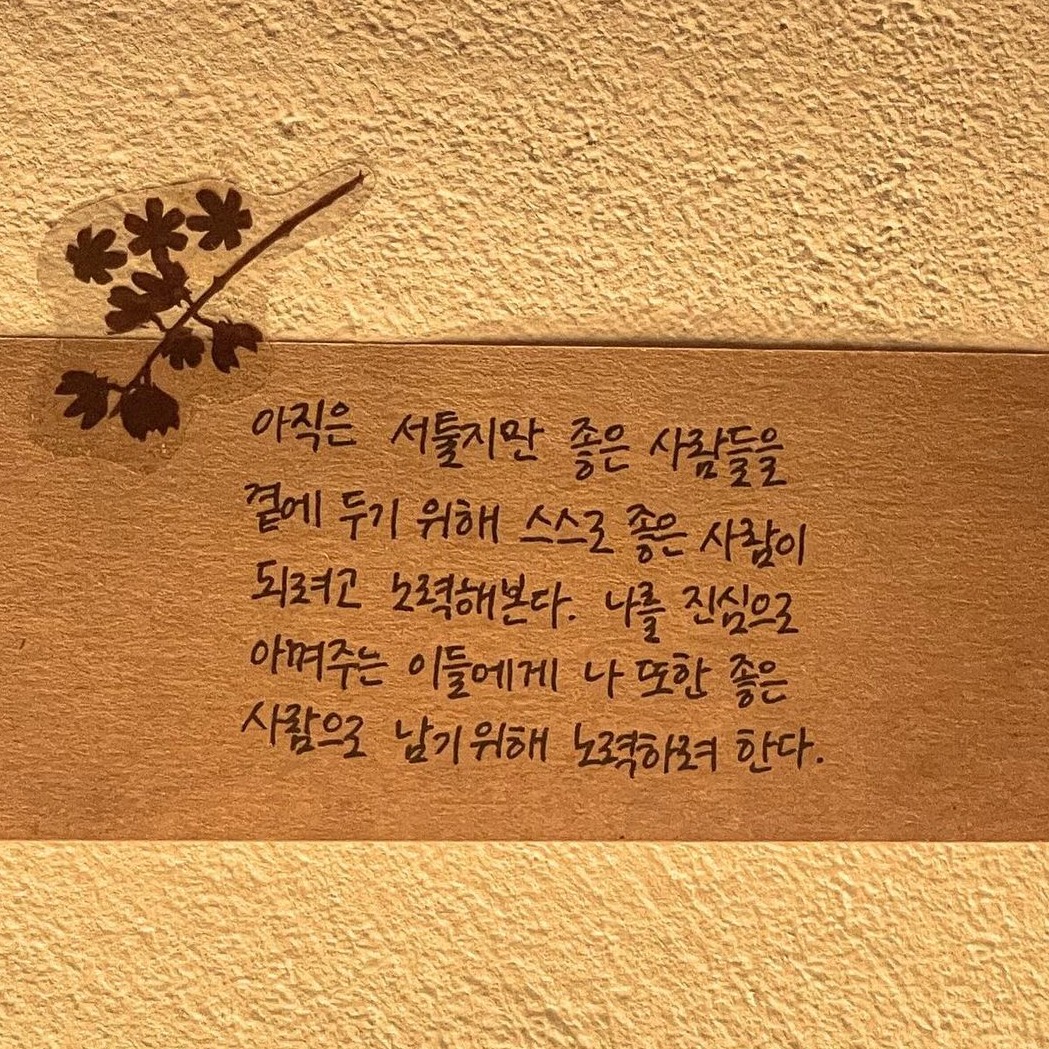 아직은 서툴지만 좋은 사람들을
곁에 두기 위해 스스로 좋은 사람이
되려고 노력해본다. 나를 진심으로
아껴주는 이들에게 나 또한 좋은
사람으로 남기 위해 노력하려 한다.